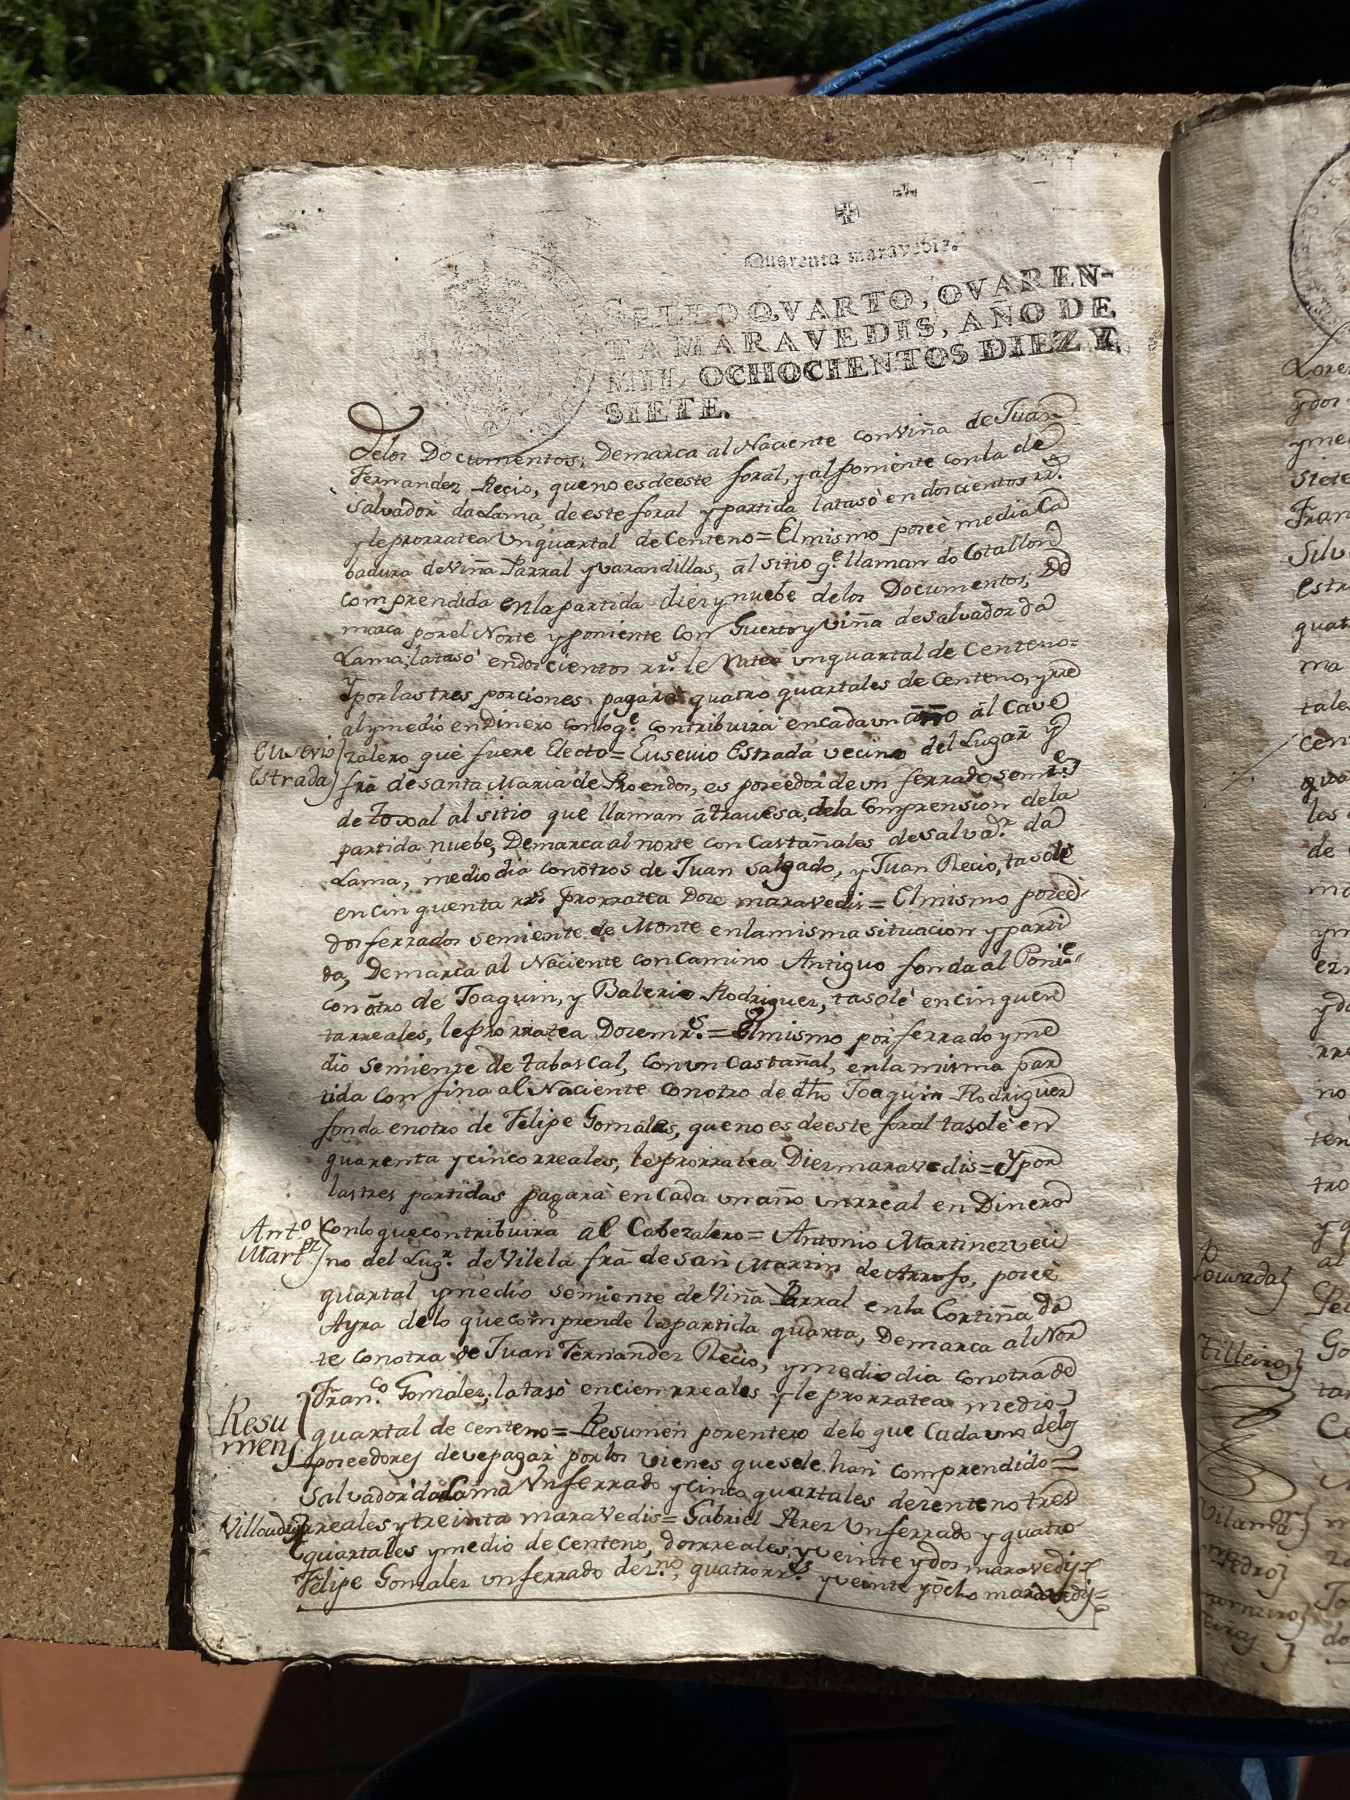 Quarenta maravedis.
SELLO QVARTO, QVAREN-
TA MARAVEDIS, AÑO DE
MIL OCHOCIENTOS DIEZ Y
SIETE.
delos Documentos; Demarca al Naciente con Viña de Juan
Fernandez Recio, que no es de este foral, y al poniente con la de
Salvador da Lama, de este foral y partida la tasó en doscientos rr.s
y le prorratea Un quartal de Centeno = El mismo poseè media Ca
badura de Viña Parral y varandillas, al sitio q.e llaman do Cotallon
comprendida en la partida diez y nuebe delos Documentos, De
marca por el Norte y poniente con Guerto y viña de Salvador da
Lama, la tasó en doscientos rr.s le Ratea un quartal de Centeno =
Y por las tres porciones pagará quatro quartales de Centeno, y rre
al y medio en Dinero con lo q.e contribuirá en cada un año àl Cave
Eusevio
Estrada
zalero que fuere Electo = Eusevio Estrada vecino del Lugar y
fra de Santa Maria de Proendos, es poseedor de un ferrado sem.te
de Toxal al sitio que llaman àtravesa, dela Comprension dela
partida nuebe, Demarca al norte con Castañales de Salva.r da
Lama, medio dia con òtros de Juan Salgado, y Juan Recio, tasole
en cinquenta rr.s prorratea Doze maravedis = El mismo poseè
dos ferrados semiente de Monte en la misma situacion y parti
da, Demarca al Naciente con Camino Antiguo fonda al Poni.e
con òtro de Joaquin, y Balerio Rodriguez, tasolè en cinquen
ta rreales, le Prorratea Doze mr.s = El mismo por ferrado y me
dio semiente de tabascal, con un Castañal, en la misma par
tida confina al Naciente con otro de dho Joaquin Rodriguez
fonda en otro de Felipe Gomales, que no es de este foral tasolè en
quarenta y cinco rreales, le prorratea Diez maravedis = Y por
las tres partidas pagarà en Cada un año un rreal en Dinero
Ant.o
Mart.ez
con lo que contribuirá àl Cabezalero = Antonio Martinez veci
no del Lug.r de Vilela fra de San Martin de Arrojo, poseè
quartal y medio semiente de Viña Parral en la Cortiña da
Ayra delo que comprende la partida quarta, Demarca al Nor
te con otra de Juan Fernandez Recio, y medio dia con otra de
Fran.co Gomalez, la tasò en cien rreales y le prorratea medio
Resu
men
quartal de centeno = Resumen por entero delo que Cada uno delos
poseedores deve pagar por los vienes que se le han comprendido =
Salvador da Lama Un ferrado y cinco quartales de zenteno tres
Villoadris
rreales y treinta maravedis = Gabriel Perez Un ferrado y quatro
quartales y medio de Centeno, dos rreales, y veinte y dos maravedis =
Felipe Gomalez un ferrado de z.no, quatro rr.s y veinte y òcho maravedis =
Pouzada
Tilleiros